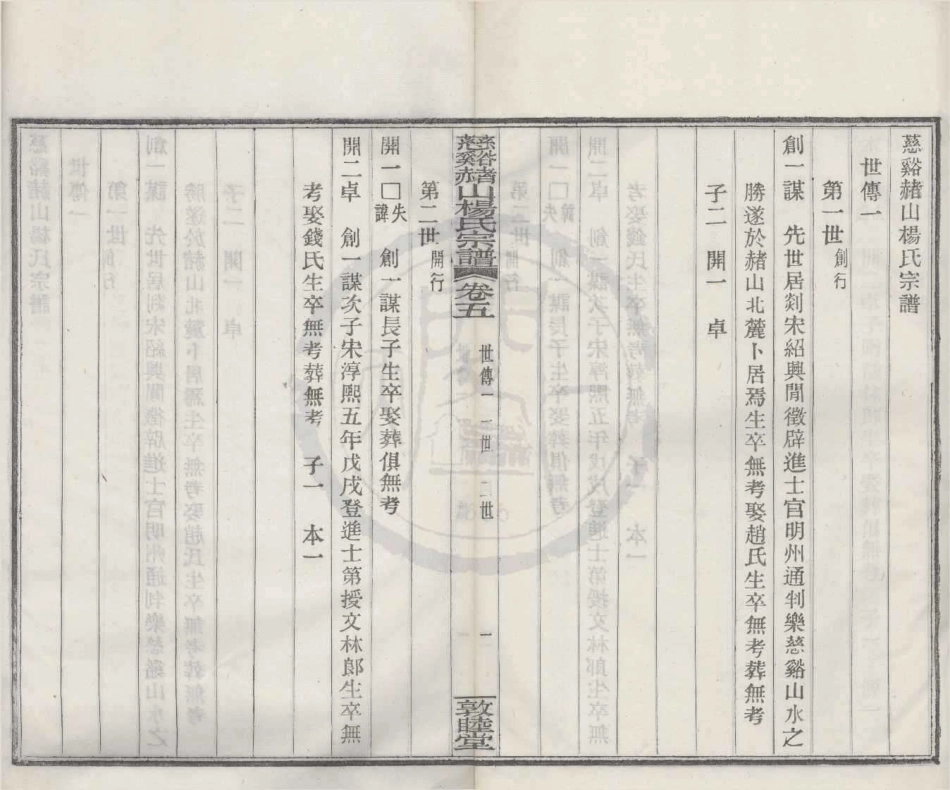 慈谿赭山楊氏宗譜
世傳一
第一世創行
創一謀 先世居剡宋紹興閒徵辟進士官明州通判樂慈谿山水之
勝遂於赭山北麓卜居焉生卒無考娶趙氏生卒無考葬無考
子二 開一 卓
慈谿赭山楊氏宗譜 卷五 世傳一 一世 二世 一 敦睦堂
第二世開行
開一□失諱 創一謀長子生卒娶葬俱無考
開二卓 創一謀次子宋淳熙五年戊戌登進士第授文林郎生卒無
考娶錢氏生卒無考葬無考 子一 本一